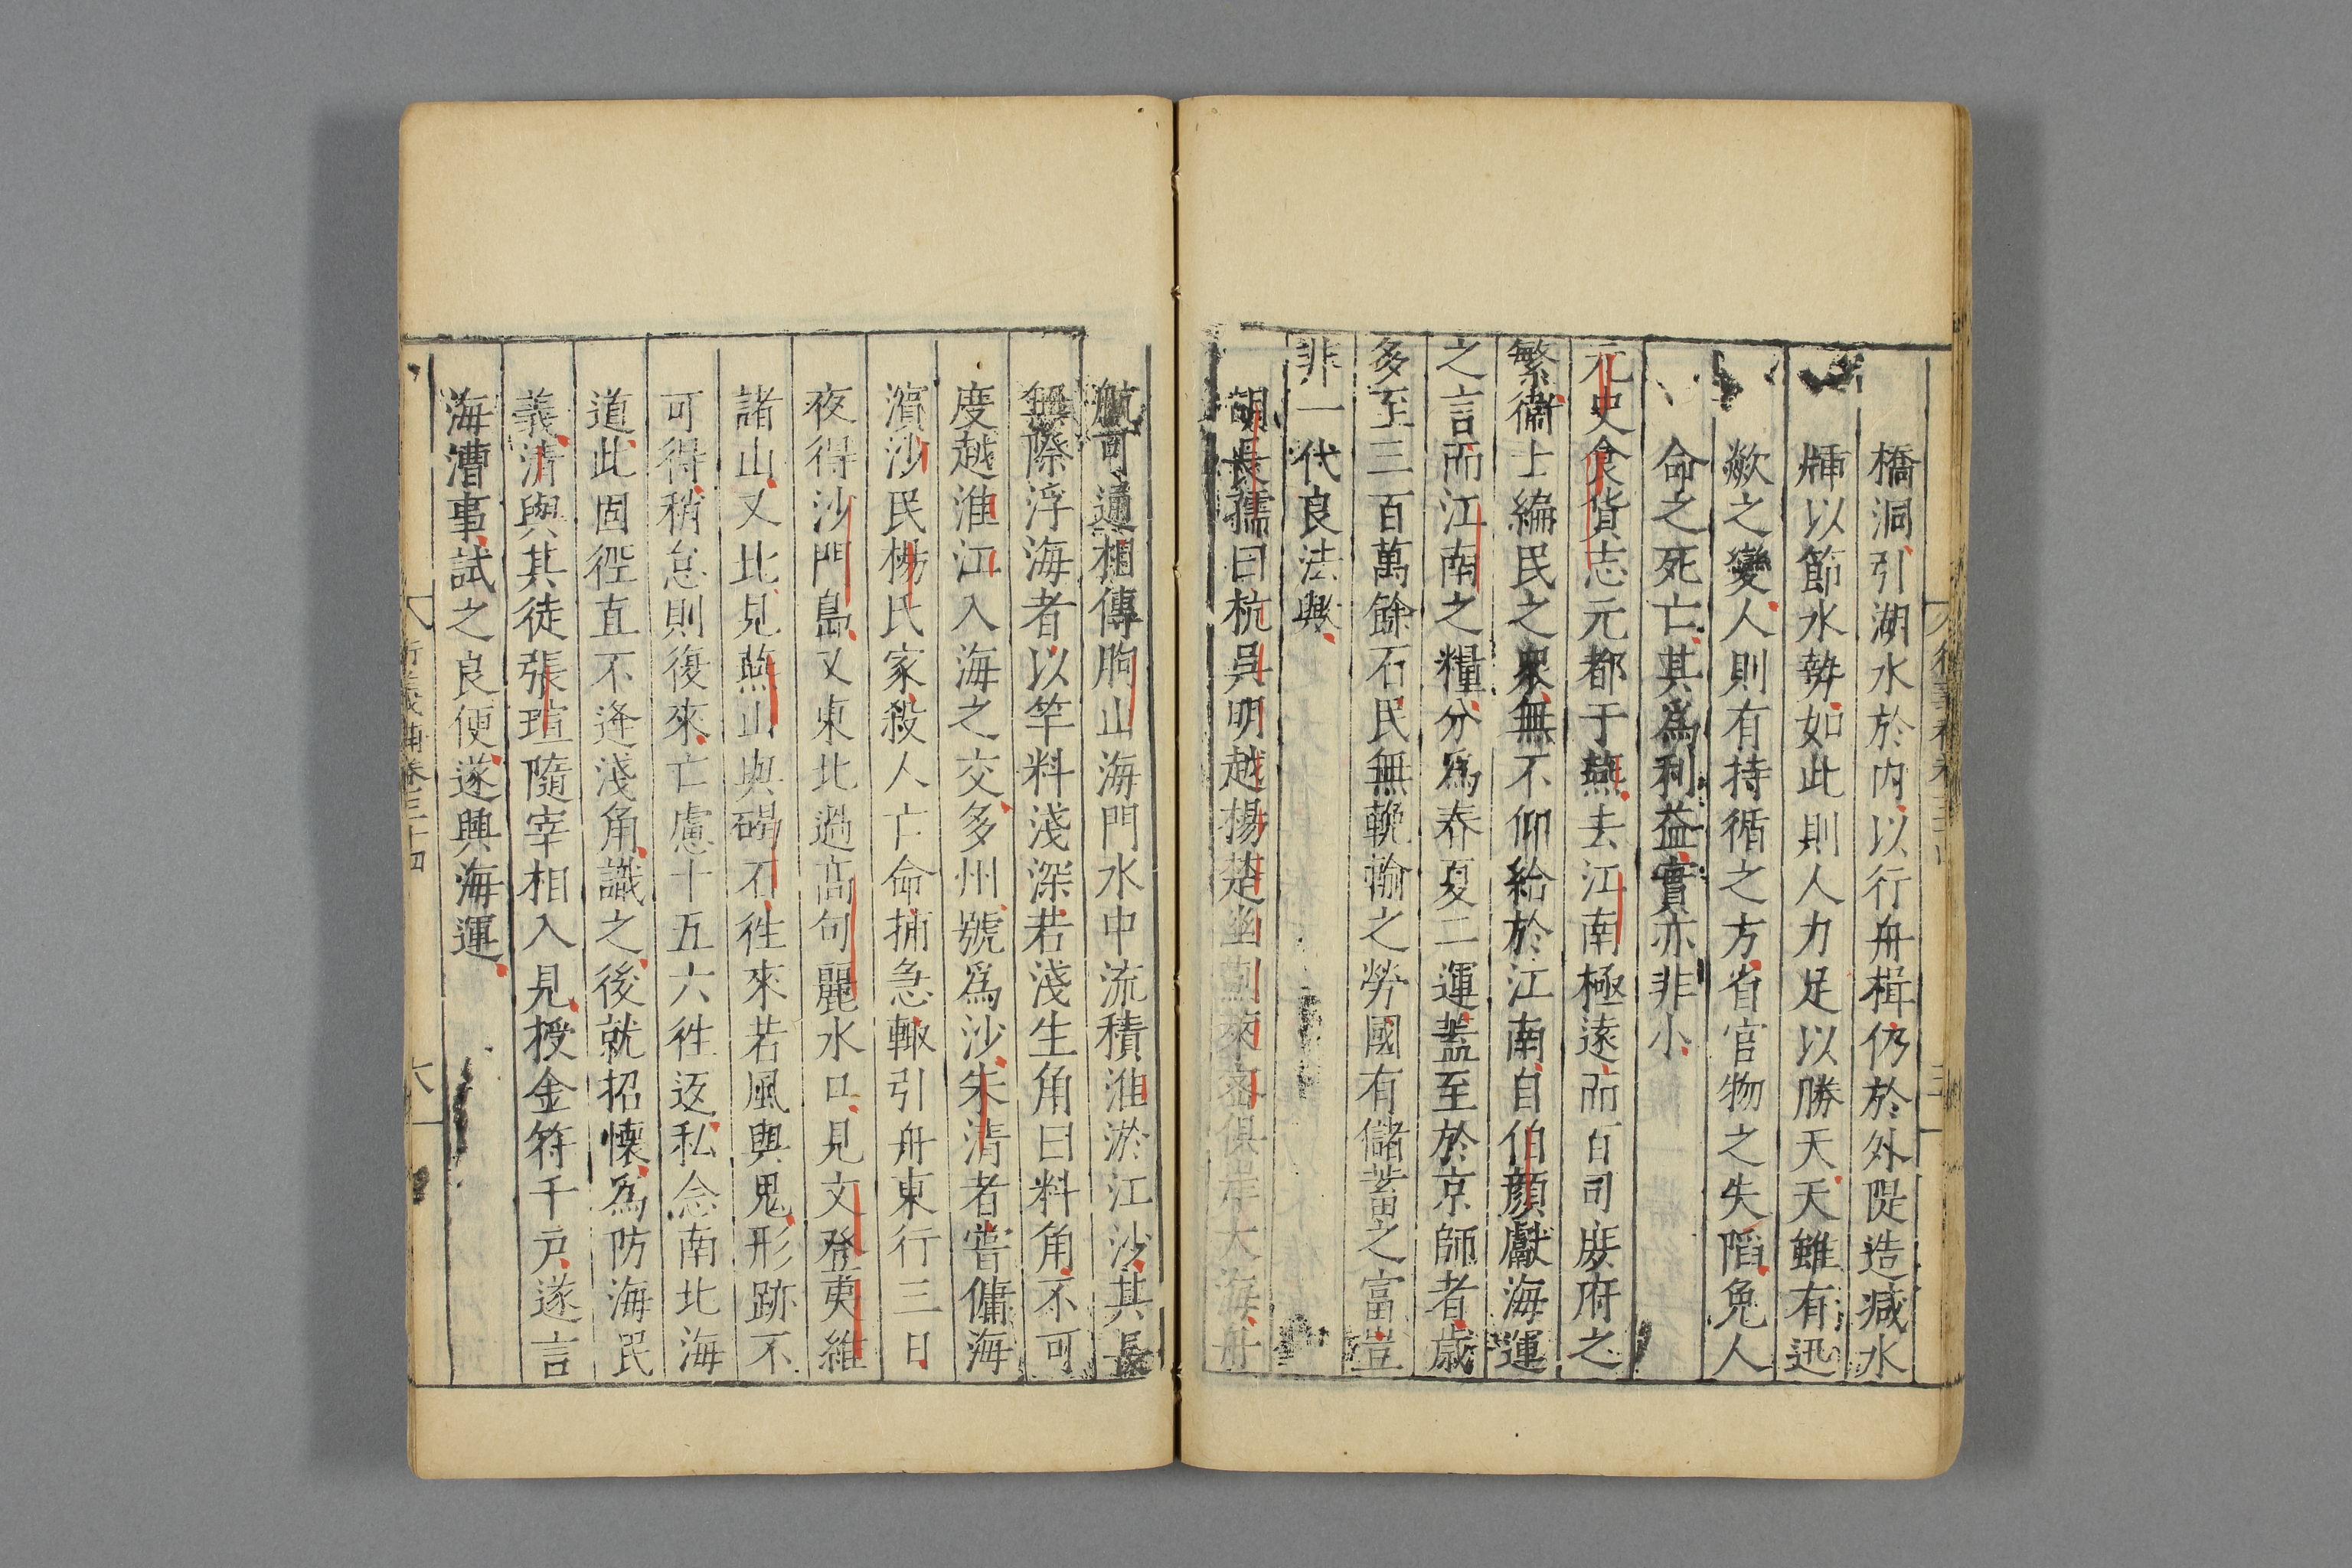 橋洞引湖水於内以行舟楫仍於外隄造減水
牐以節水勢如此則人力足以勝天天雖有迅
歘之變人則有持循之方省官物之失陷免人
命之死亡其爲利益實亦非小
元史食貨志元都于燕去江南極遠而百司庶府之
繁衞士編民之衆無不仰給於江南自伯顔獻海運
之言而江南之糧分爲春夏二運蓋至於京師者歲
多至三百萬餘石民無輓輸之勞國有儲蓄之富豈
非一代良法歟
胡長孺曰杭吳明越揚楚幽薊萊密俱岸大海舟
航可通相傳朐山海門水中流積淮淤江沙其長
無際浮海者以竿料淺深若淺生角曰料角不可
度越淮江入海之交多州號爲沙朱清者嘗傭海
濵沙民楊氏家殺人亡命捕急輙引舟東行三日
夜得沙門島又東北過高句麗水口見文登夷維
諸山又北見燕山與碣石徃來若風與鬼形跡不
可得稍怠則復來亡慮十五六徃返私念南北海
道此固徑直不逢淺角識之後就招懷爲防海民
義清與其徒張瑄隨宰相入見授金符千户遂言
海漕事試之良便遂興海運